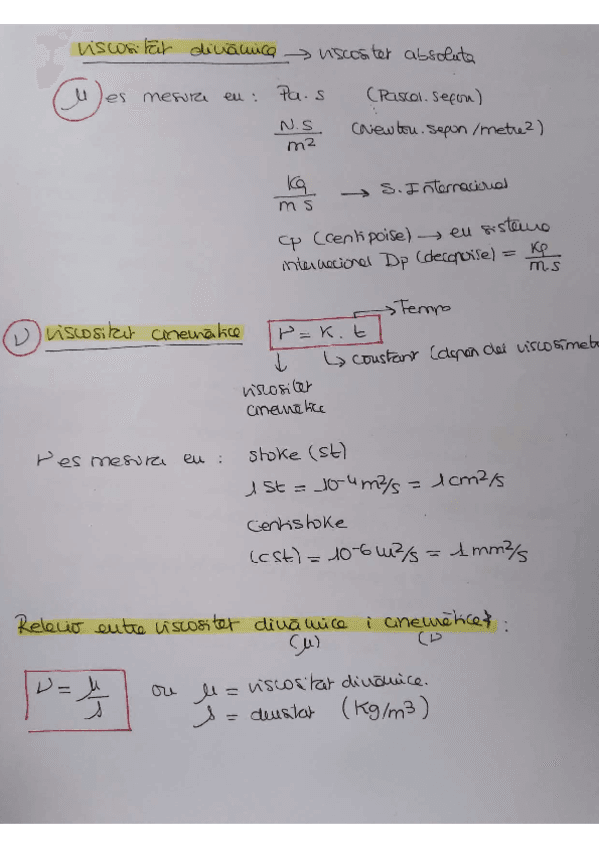 viscositat dinàmica → viscositat absoluta
μ es mesura en : Pa.s (Pascal.segon)
N.S/m² (Newton.segon/metre²)
Kg/m s → S. Internacional
Cp (centipoise) → en sistema
internacional Dp (decapoise) = Kp/m s
→ Temps
ν viscositat cinemàtica ν = K. t
↳ constant (depen del viscosimetre
↓
viscositat
cinematica
ν es mesura en : stoke (st)
1 St = 10-4 m²/s = 1 cm²/s
Centistoke
(cst) = 10-6 m²/s = 1 mm²/s
Relació entre viscositat dinàmica i cinemàtica :
(μ) (ν
ν = μ/ρ on μ = viscositat dinàmica.
ρ = densitat (Kg/m3)